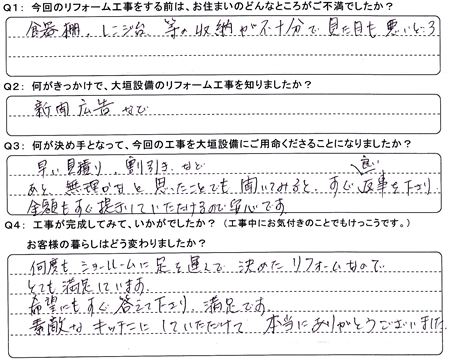 Q1: 今回のリフォーム工事をする前は、お住まいのどんなところがご不満でしたか?
食器棚、レンジ台、等の収納が不十分で見た目も悪いところ
Q2: 何がきっかけで、大垣設備のリフォーム工事を知りましたか?
新聞広告などで
Q3: 何が決め手となって、今回の工事を大垣設備にご用命くださることになりましたか?
早い見積り、割引きなど
良い
あと、無理かなと思ったことでも聞いてみると、すぐ返事を下さり、
金額もすぐ提示していただけるので安心です
Q4: 工事が完成してみて、いかがでしたか?(工事中にお気付きのことでもけっこうです。)
お客様の暮らしはどう変わりましたか?
何度もショールームに足を運んで決めたリフォームなので
とても満足しています。
希望にもすぐ答えて下さり、満足です。
素敵なキッチンにしていただけて本当にありがとうございました